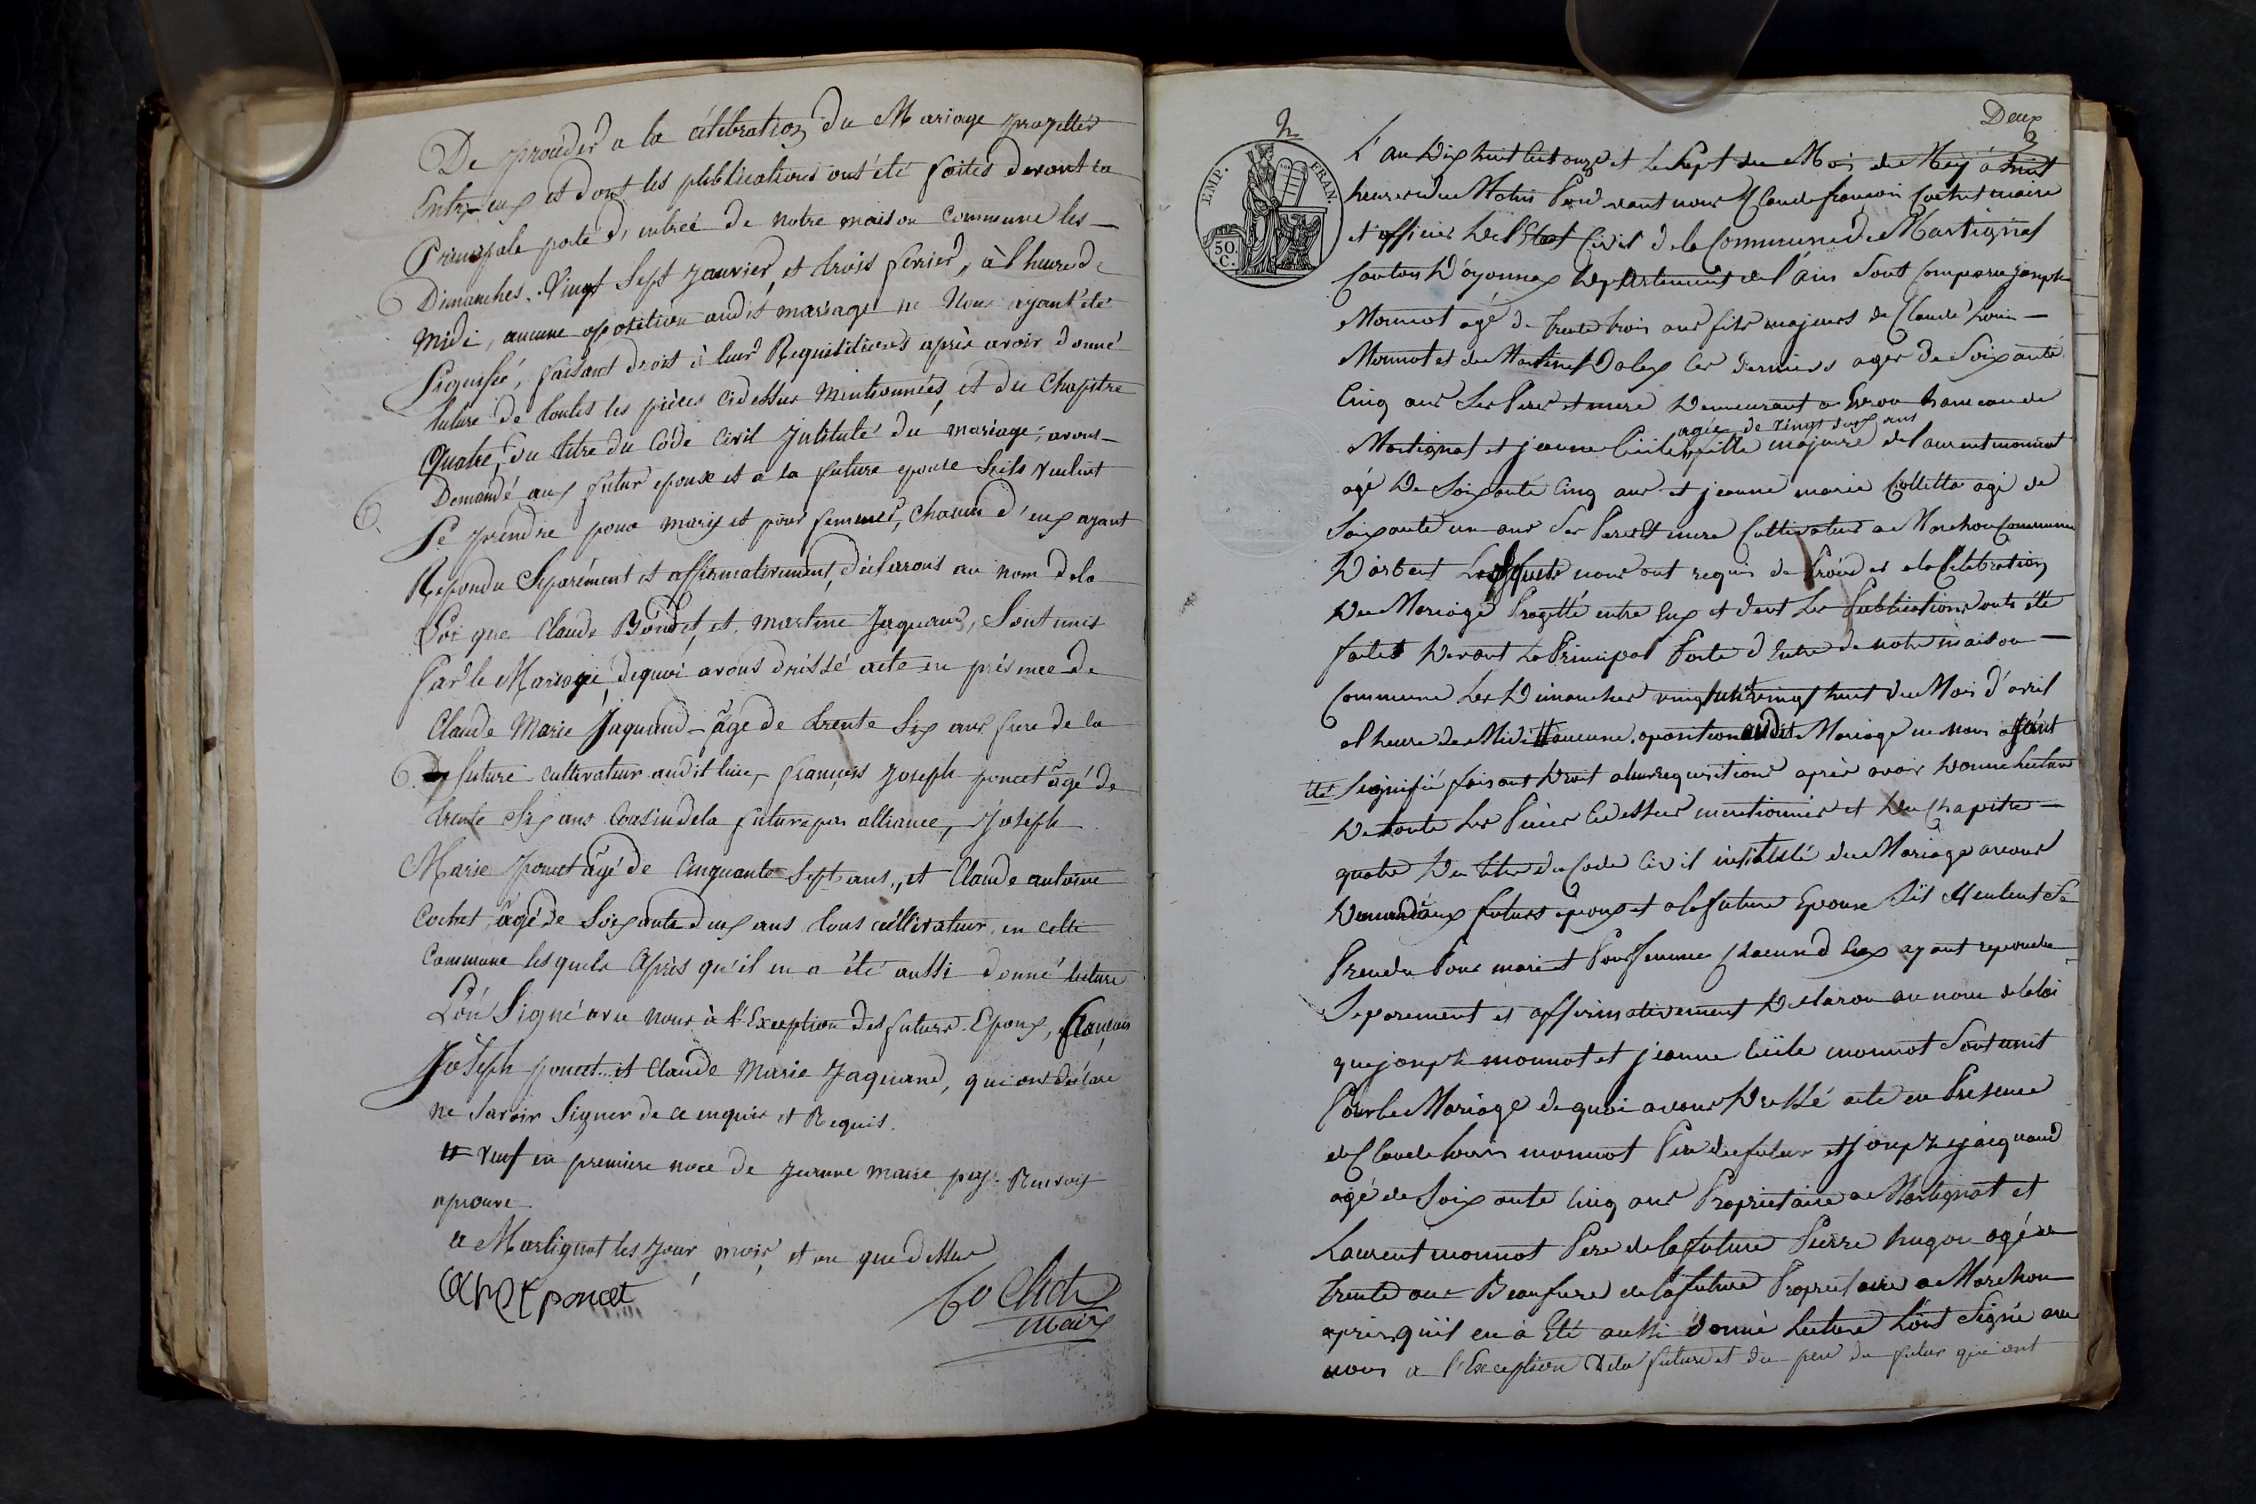 De proceder a la célébration du Mariage projetté
Entr-eux et dont les publications ont été faites devant la
Principale porte d'entreé de notre maison commune les
Dimanches Vingt Sept janvier, et trois fevrier, à l'heure de
midi, aucune oposition audit mariage ne Nous ayant été
Signifié, faisant droit à leur Requisitions après avoir donné
lecture de toutes les pièces cidessus mentionnées, et du Chapitre
Quatre, du titre du Côde Civil Intitulé du mariage, avons
Demandé aux futur epoux et a la future epouse Sils veulent
Se prendre pour mary et pour femmes, chacun d'eux ayant
Repondu Séparément et affirmativement, déclarons au nom de la
Loi que Claude Bondet, et Martine Jaquand, Sont unis
Par le Mariage, dequoi avons dréssé acte en présence de
Claude Marie Jaquand âgé de trente Six ans frere de la
future cultivateur audit lieu, François Joseph poncet âgé de
trente Six ans Cousin de la future par alliance, Joseph
Marie poncet âgé de Cinquante Sept ans, et Claude antoine
Cochet âgé de Soixante deux ans tous cultivateur en cette
Commune lesquels Après qu'il en a été aussi donné lecture
L'on Signé avec nous à l'Exception des futurs Epoux, françois
Joseph poncet et Claude Marie Jaquand, qui ont déclaré
ne Savoir Signer de ce enquis et Requis.
veuf en premiere noce de jeanne marie Renvoy
aprouve
a Martignat les jour, mois, et an que dessus
poncet
Cochet
maire
2
Deux
EMP. FRAN.
50 C.
L'an Dix huit Cent onze et le Sept du Mois de May à huit
heures du Matin Pard vant nous Claude françois Cochet maire
et officier de l'Etat Civil de la Commune de Martignat
Canton D'oyonnax Departement de l'ain Sont Comparu joseph
Monnot agé de trente trois ans fils majeurs de Claude Louis
Monnot et de Martine Dalex Ces derniers ages de Soixante
Cinq ans Ses Pere et mere Demeurant a hameau de
agée de vingt sept ans
Martignat et jeanne Cécile fille majeure de Laurent monnot
agé de Soixante Cinq ans et jeanne marie Colletta agé de
Soixante un ans Ses Pere et mere Cultivateurs a Marchon Commune
D'arbent Lesquels nous ont requis de Proceder a la Celebration
Du Mariage Progetté entre Eux et dont les Publications onts été
faites Devant la Principal Porte d'Entre de notre maison
Commune Les Dimanches vingt un vingt huit du Mois d'avril
a l'heure de Midi aucune oposition audit Mariage ne nous ayant
été Signifié faisant Droit a leur requisitions après avoir Donne Lecture
De toute Les Pieces Cidessus mentionnes et Du Chapitre
quatre Du titre Du Code Civil intitulé du Mariage avons
Demandé aux futurs epoux et a la future Epouse S'ils Veulent Se
Prendre Pour mari et Pour femme Chacun d'Eux ayant repondu
Separement et affirmativement Declarons au nom de la loi
que joseph monnot et jeanne Cécile monnot Sont unit
Par le Mariage de quoi avons Dressé acte en Presence
de Claude Louis monnot Pere du futur et joseph jacquand
agé de Soixante Cinq ans Proprietaire a Martignat et
Laurent monnot Pere de la future Pierre hugon agé de
trente ans Beaufrere de la future Proprietaire a Marchon
apres quil en à Eté aussi donné Lecture L'ont Signé avec
nous a l'Exception de la future et du pere du futur qui ont